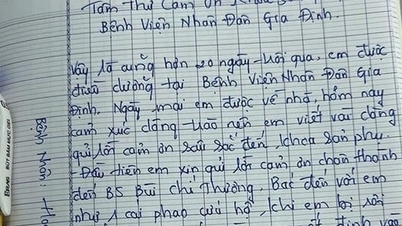 Tâm Thư Cảm Ơn Khoa
Bệnh Viện Nhân Dân Gia Định.
Vậy là cũng hơn 20 ngày trôi qua, em được
điều dưỡng tại Bệnh Viện Nhân Dân Gia
Định. Ngày mai em được về nhà, hôm nay
cảm xúc dâng trào nên em viết vài dòng
gửi lời cảm ơn sâu sắc đến khoa sản phụ.
Đầu tiên em xin gửi lời cảm ơn chân thành
đến BS Bùi Chí Thương. Bác đến với em
như 1 cái phao cứu hộ, khi em bị rơi
định vào
Bệnh Nhân: